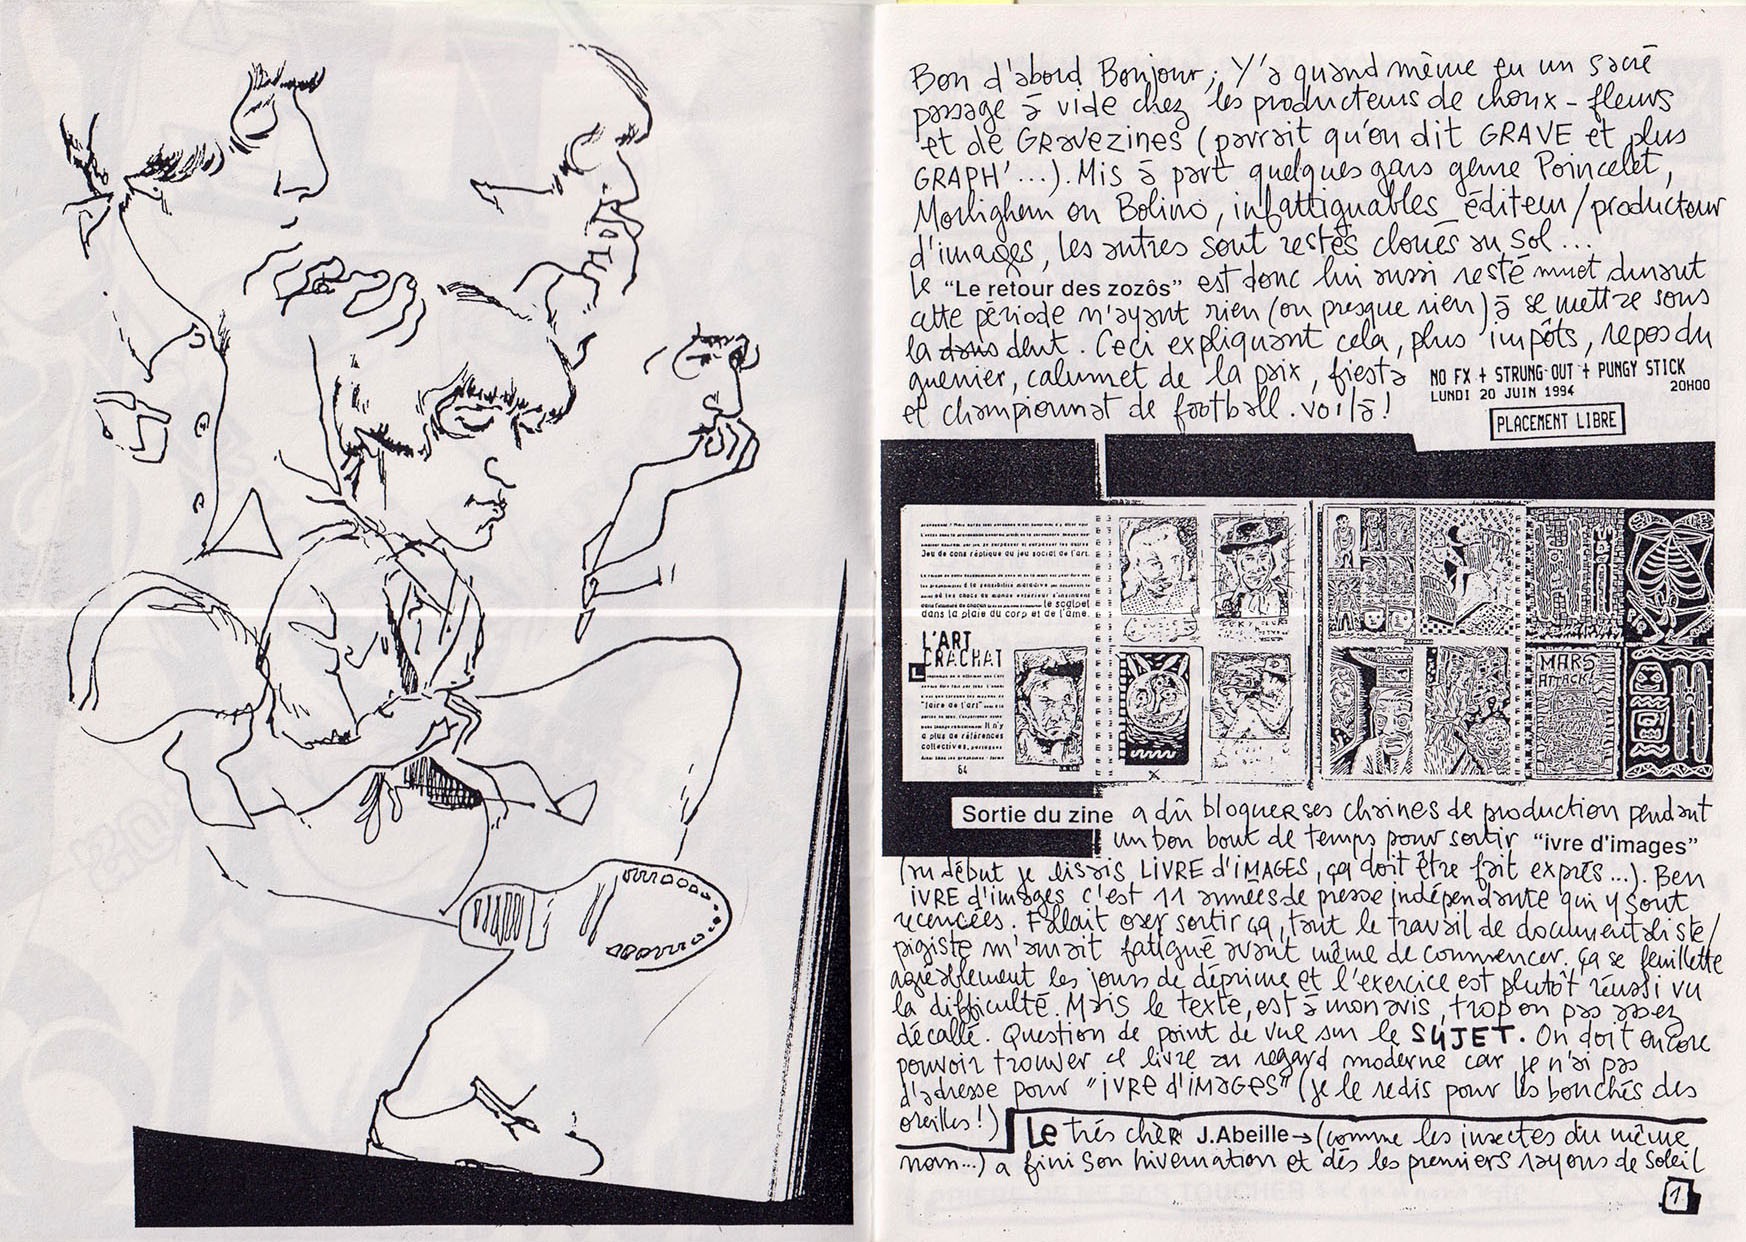 Bon d'abord Bonjour; Y'a quand même eu un sacré
passage à vide chez les producteurs de choux-fleurs
et de Gravezines (parrait qu'on dit GRAVE et plus
GRAPH'...). Mis à part quelques gars genre Poincelet,
Morlighem ou Bolino, infattiguables éditeur/producteur
d'images, les autres sont restés cloués au sol...
Le "Le retour des zozôs" est donc lui aussi resté muet durant
cette période n'ayant rien (ou presque rien) à se mettre sous
la dans dent. Ceci expliquant cela, plus impôts, repos du
guerrier, calumet de la paix, fiesta
et championnat de football. voilà!
NO FX + STRUNG OUT + PUNGY STICK
LUNDI 20 JUIN 1994 20H00
PLACEMENT LIBRE
Jeu de cons réplique au jeu social de l'art.
à la sensibilité maladive
le scalpel
dans la plaie du corp et de l'âme.
L'ART
CRACHAT
"faire de l'art"
il n'y
a plus de références
collectives,
64
MARS
ATTACK!
Sortie du zine a dû bloquer ses chaines de production pendant
un bon bout de temps pour sortir "ivre d'images"
(au début je lisais LIVRE d'IMAGES, ça doit être fait exprés...). Ben
IVRE d'images c'est 11 années de presse indépendante qui y sont
recencées. Fallait oser sortir ça, tout le travail de documentaliste/
pigiste m'aurait fatigué avant même de commencer. ça se feuillette
agréablement les jours de déprime et l'exercice est plutôt réussi vu
la difficulté. Mais le texte, est à mon avis, trop ou pas assez
décallé. Question de point de vue sur le SUJET. On doit encore
pouvoir trouver ce livre au regard moderne car je n'ai pas
d'adresse pour "IVRE d'IMAGES" (je le redis pour les bouchés des
oreilles!) Le trés chèr J.Abeille → (comme les insectes du même
nom...) a fini son hivernation et dés les premiers rayons de soleil
1